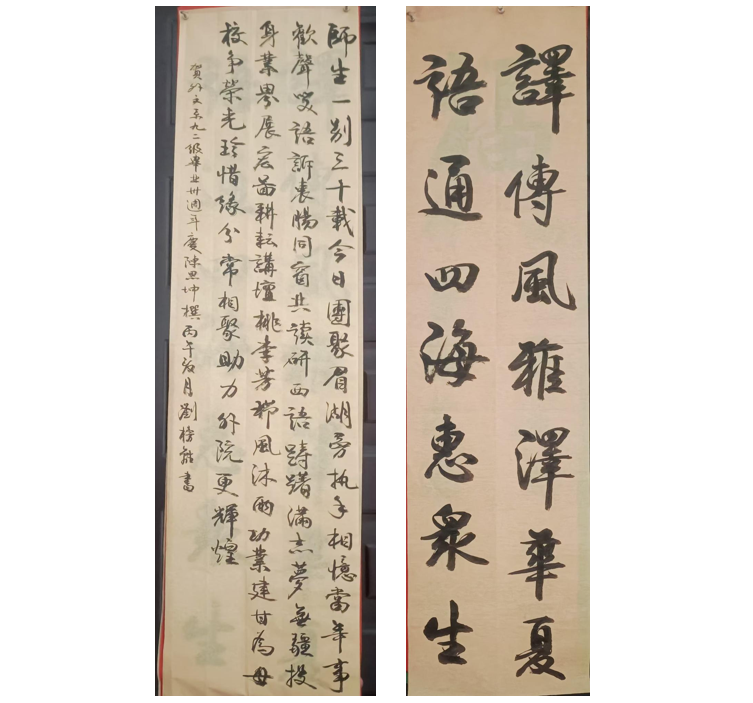 師生一別三十載今日團聚眉湖旁執手相憶當年事
歡聲笑語訴衷腸同窗共讀研西語躊躇滿志夢無疆投
身業界展宏圖耕耘講壇桃李芳櫛風沐雨功業建甘為母
校爭榮光珍惜緣分常相聚助力外院更輝煌
賀外文系九二級畢業卅週年慶陳思坤撰丙午
月劉榜
書
譯傳風雅澤華夏
語通四海惠眾生